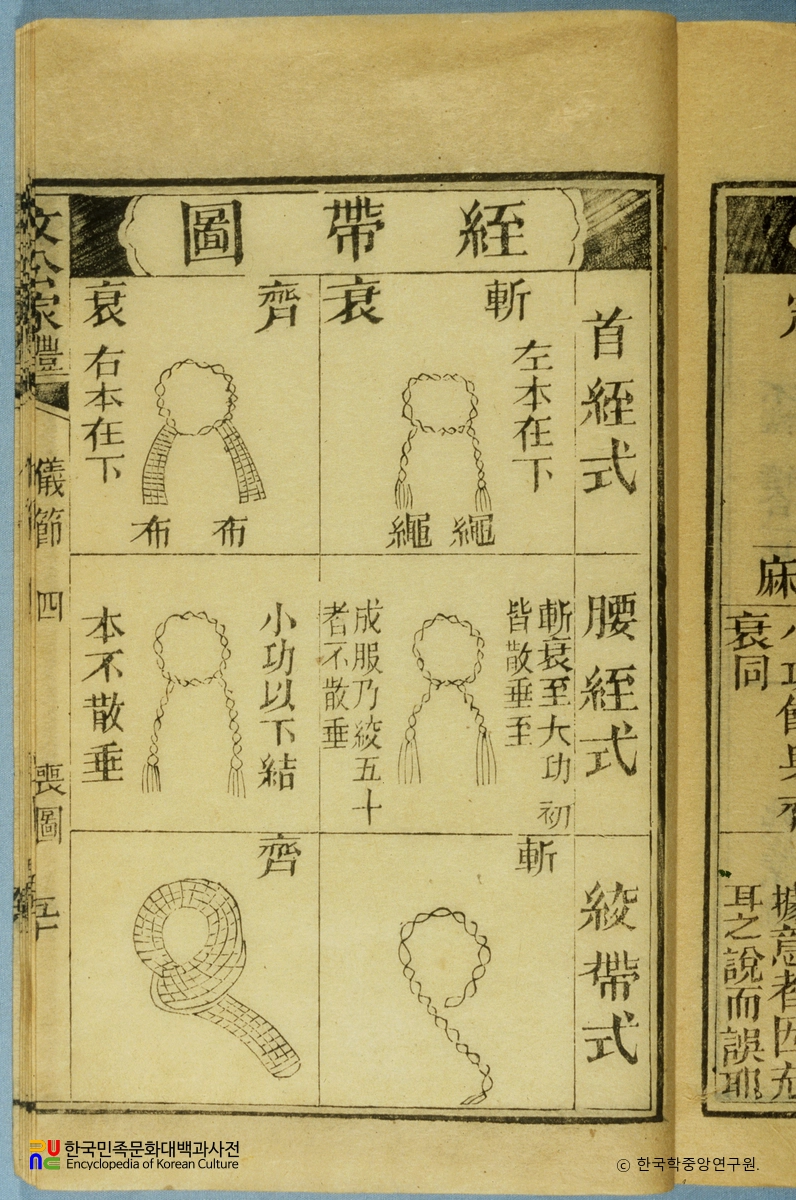 絰帶圖
首絰式
斬衰
左本在下
繩
繩
齊衰
右本在下
布
布
腰絰式
斬衰至大功初
皆散垂至
成服乃絞五十
者不散垂
小功以下結
本不散垂
絞帶式
斬
齊
文公家禮
儀節
四
喪圖
麻
衰同
據意者因
耳之說而誤耶
한국민족문화대백과사전
Encyclopedia of Korean Culture
© 한국학중앙연구원.